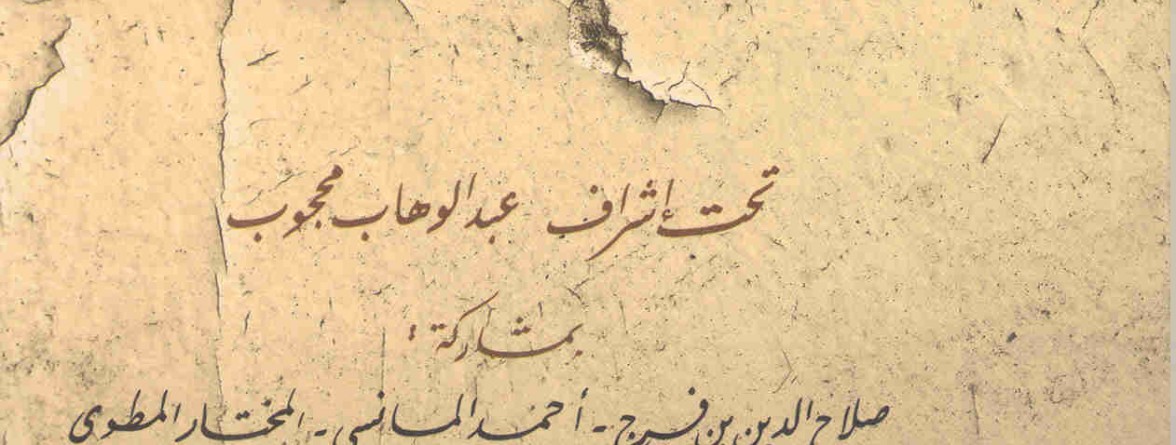 تحت إشراف عبد الوهاب محجوب
بمشاركة :
صلاح الدين بن فرج - أحمد المانسي - المختار المطوى